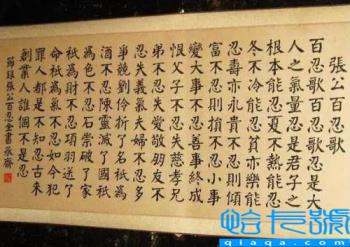 張公百忍歌
百忍歌百忍歌忍是大
人之氣量忍是君子之
根本能忍夏不熱能忍
冬不冷能忍貧亦樂能
忍壽亦永貴不忍則傾
富不忍則損不忍小事
變大事不忍善事終成
恨父子不忍失慈孝兄
弟不忍失愛敬朋友不
忍失義氣夫婦不忍多
爭競劉伶敗了名秖為
酒不忍陳靈滅了國秖
為色不忍石崇破了家
秖為財不忍項羽送了
命秖為氣不忍如今犯
罪人都是不知忍古來
創業人誰個不是忍
節錄張公百忍全書
哈卡號
qiaqa.com